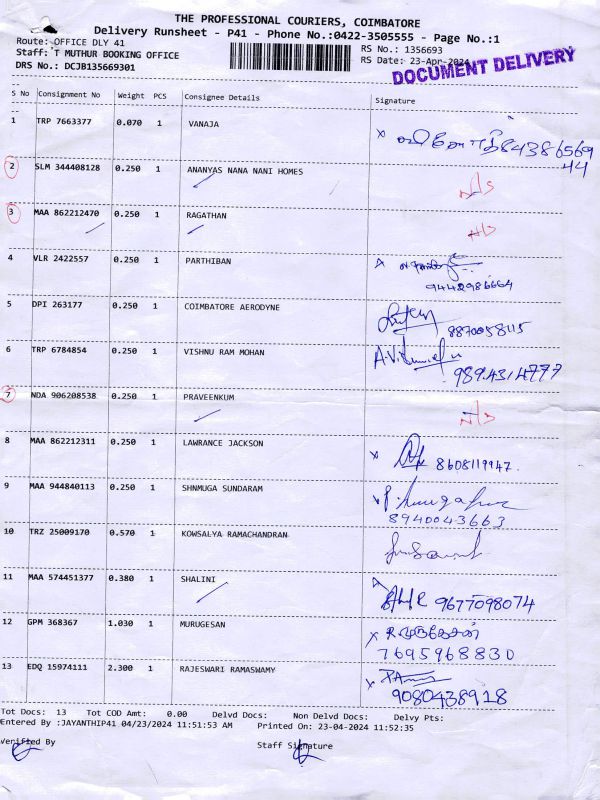 THE PROFESSIONAL COURIERS, COIMBATORE
Delivery Runsheet - P41 - Phone No.:0422-3505555 - Page No.:1
Route: OFFICE DLY 41
Staff: T MUTHUR BOOKING OFFICE
DRS No.: DCJB135669301
RS No.: 1356693
RS Date: 23-Apr-2024
DOCUMENT DELIVERY
S No Consignment No Weight PCS Consignee Details Signature
1 TRP 7663377 0.070 1 VANAJA 84386569
44
2 SLM 344408128 0.250 1 ANANYAS NANA NANI HOMES N/S
3 MAA 862212470 0.250 1 RAGATHAN
4 VLR 2422557 0.250 1 PARTHIBAN
9442986664
5 DPI 263177 0.250 1 COIMBATORE AERODYNE 8870058115
6 TRP 6784854 0.250 1 VISHNU RAM MOHAN
9894314777
7 NDA 906208538 0.250 1 PRAVEENKUM N/S
8 MAA 862212311 0.250 1 LAWRANCE JACKSON 8608119947
9 MAA 944840113 0.250 1 SHNMUGA SUNDARAM
8940043663
10 TRZ 25009170 0.570 1 KOWSALYA RAMACHANDRAN
11 MAA 574451377 0.380 1 SHALINI 9677098074
12 GPM 368367 1.030 1 MURUGESAN
7695968830
13 EDQ 15974111 2.300 1 RAJESWARI RAMASWAMY
9080438918
Tot Docs: 13 Tot COD Amt: 0.00 Delvd Docs: Non Delvd Docs: Delvy Pts:
Entered By :JAYANTHIP41 04/23/2024 11:51:53 AM Printed On: 23-04-2024 11:52:35
Verified By Staff Signature